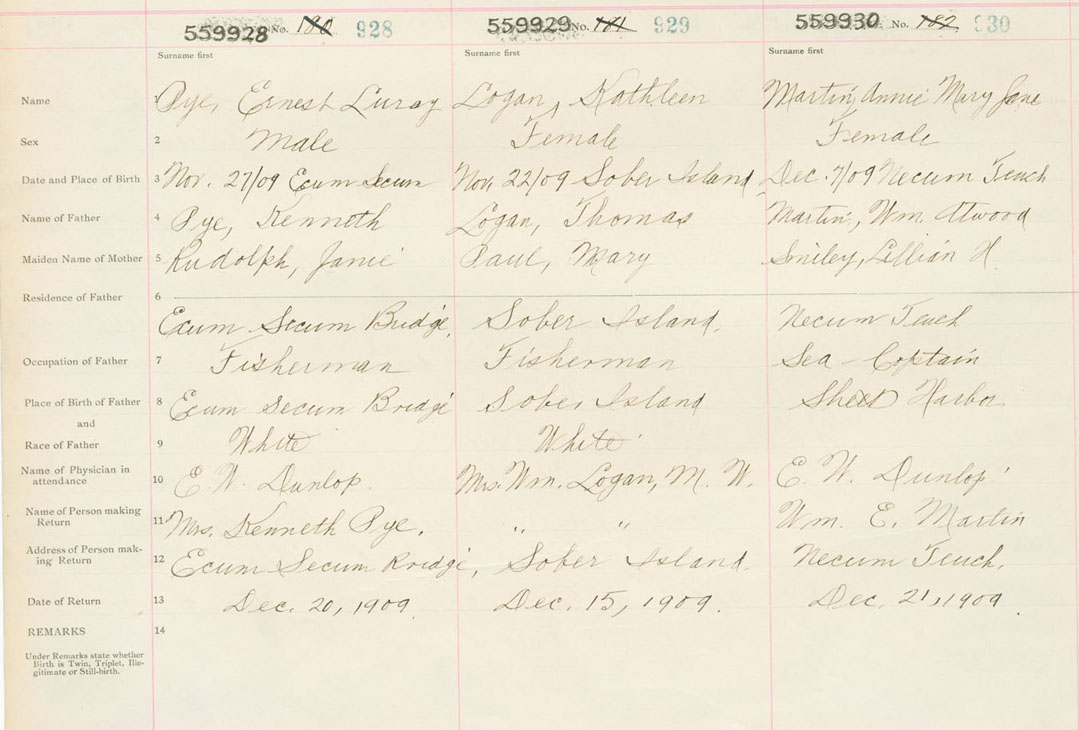 559928 No. 180 928 559929 No. 181 929 559930 No. 182 930
Surname first Surname first Surname first
Name 1 Pye, Ernest Luray Logan, Kathleen Martin, Annie Mary Jane
Sex 2 Male Female Female
Date and Place of Birth 3 Nov. 27/09 Ecum Secum Nov. 22/09 Sober Island Dec. 7/09 Necum Teuch
Name of Father 4 Pye, Kenneth Logan, Thomas Martin, Wm. Atwood
Maiden Name of Mother 5 Rudolph, Janie Paul, Mary Smiley, Lillian H.
Residence of Father 6
Ecum Secum Bridge, Sober Island. Necum Teuch
Occupation of Father 7 Fisherman Fisherman Sea - Captain
Place of Birth of Father 8 Ecum Secum Bridge Sober Island Sheet Harbor
and
Race of Father 9 White White
Name of Physician in
attendance 10 E. W. Dunlop. Mrs. Wm. Logan, M. W. E. W. Dunlop
Name of Person making
Return 11 Mrs. Kenneth Pye. " " Wm. E. Martin
Address of Person mak-
ing Return 12 Ecum Secum Bridge, Sober Island. Necum Teuch.
Date of Return 13 Dec. 20, 1909 Dec. 15, 1909. Dec. 21, 1909.
REMARKS 14
Under Remarks state whether
Birth is Twin, Triplet, Ille-
gitimate or Still-birth.